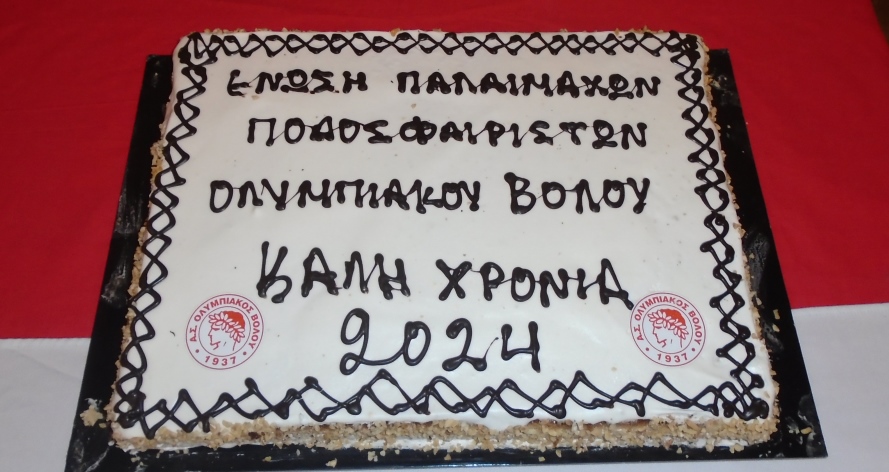 ΕΝΩΣΗ ΠΑΛΑΙΜΑΧΩΝ
ΠΟΔΟΣΦΑΙΡΙΣΤΩΝ
ΟΛΥΜΠΙΑΚΟΥ ΒΟΛΟΥ
ΚΑΛΗ ΧΡΟΝΙΑ
2024
Α.Σ. ΟΛΥΜΠΙΑΚΟΣ ΒΟΛΟΥ
• 1937 •
Α.Σ. ΟΛΥΜΠΙΑΚΟΣ ΒΟΛΟΥ
• 1937 •